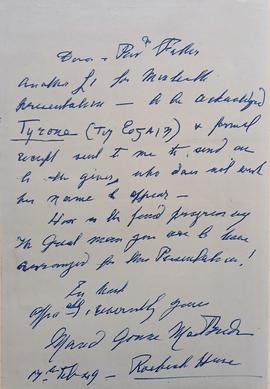 Dear & Revd Father
Another £1 for Macbeath
Presentation — to be acknowledged
Tyrone (Tir Eoġain) & formal
receipt sent to me to send on
to the giver who does not wish
his name to appear —
How is the fund progressing
good man you are to have
arranged for this Presentation!
In haste
sincerely yours
Maud Gonne MacBride
Roebuck House